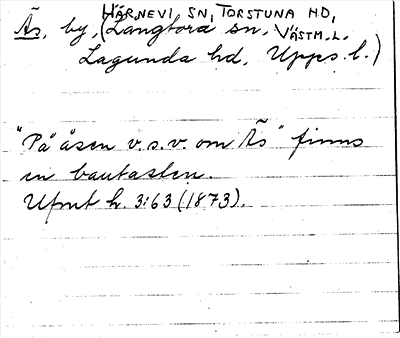 HÄRNEVI SN, TORSTUNA HD,
Ås, by, (Långtora sn. VÄSTM. L.
Lagunda hd, Upps. l.)
"På åsen v.s.v. om Ås" finns
en bautasten.
Ufmt h. 3:63 (1873).